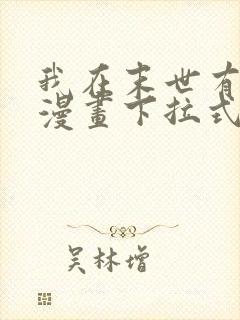 我在末世有
漫畫下拉式
吴林增